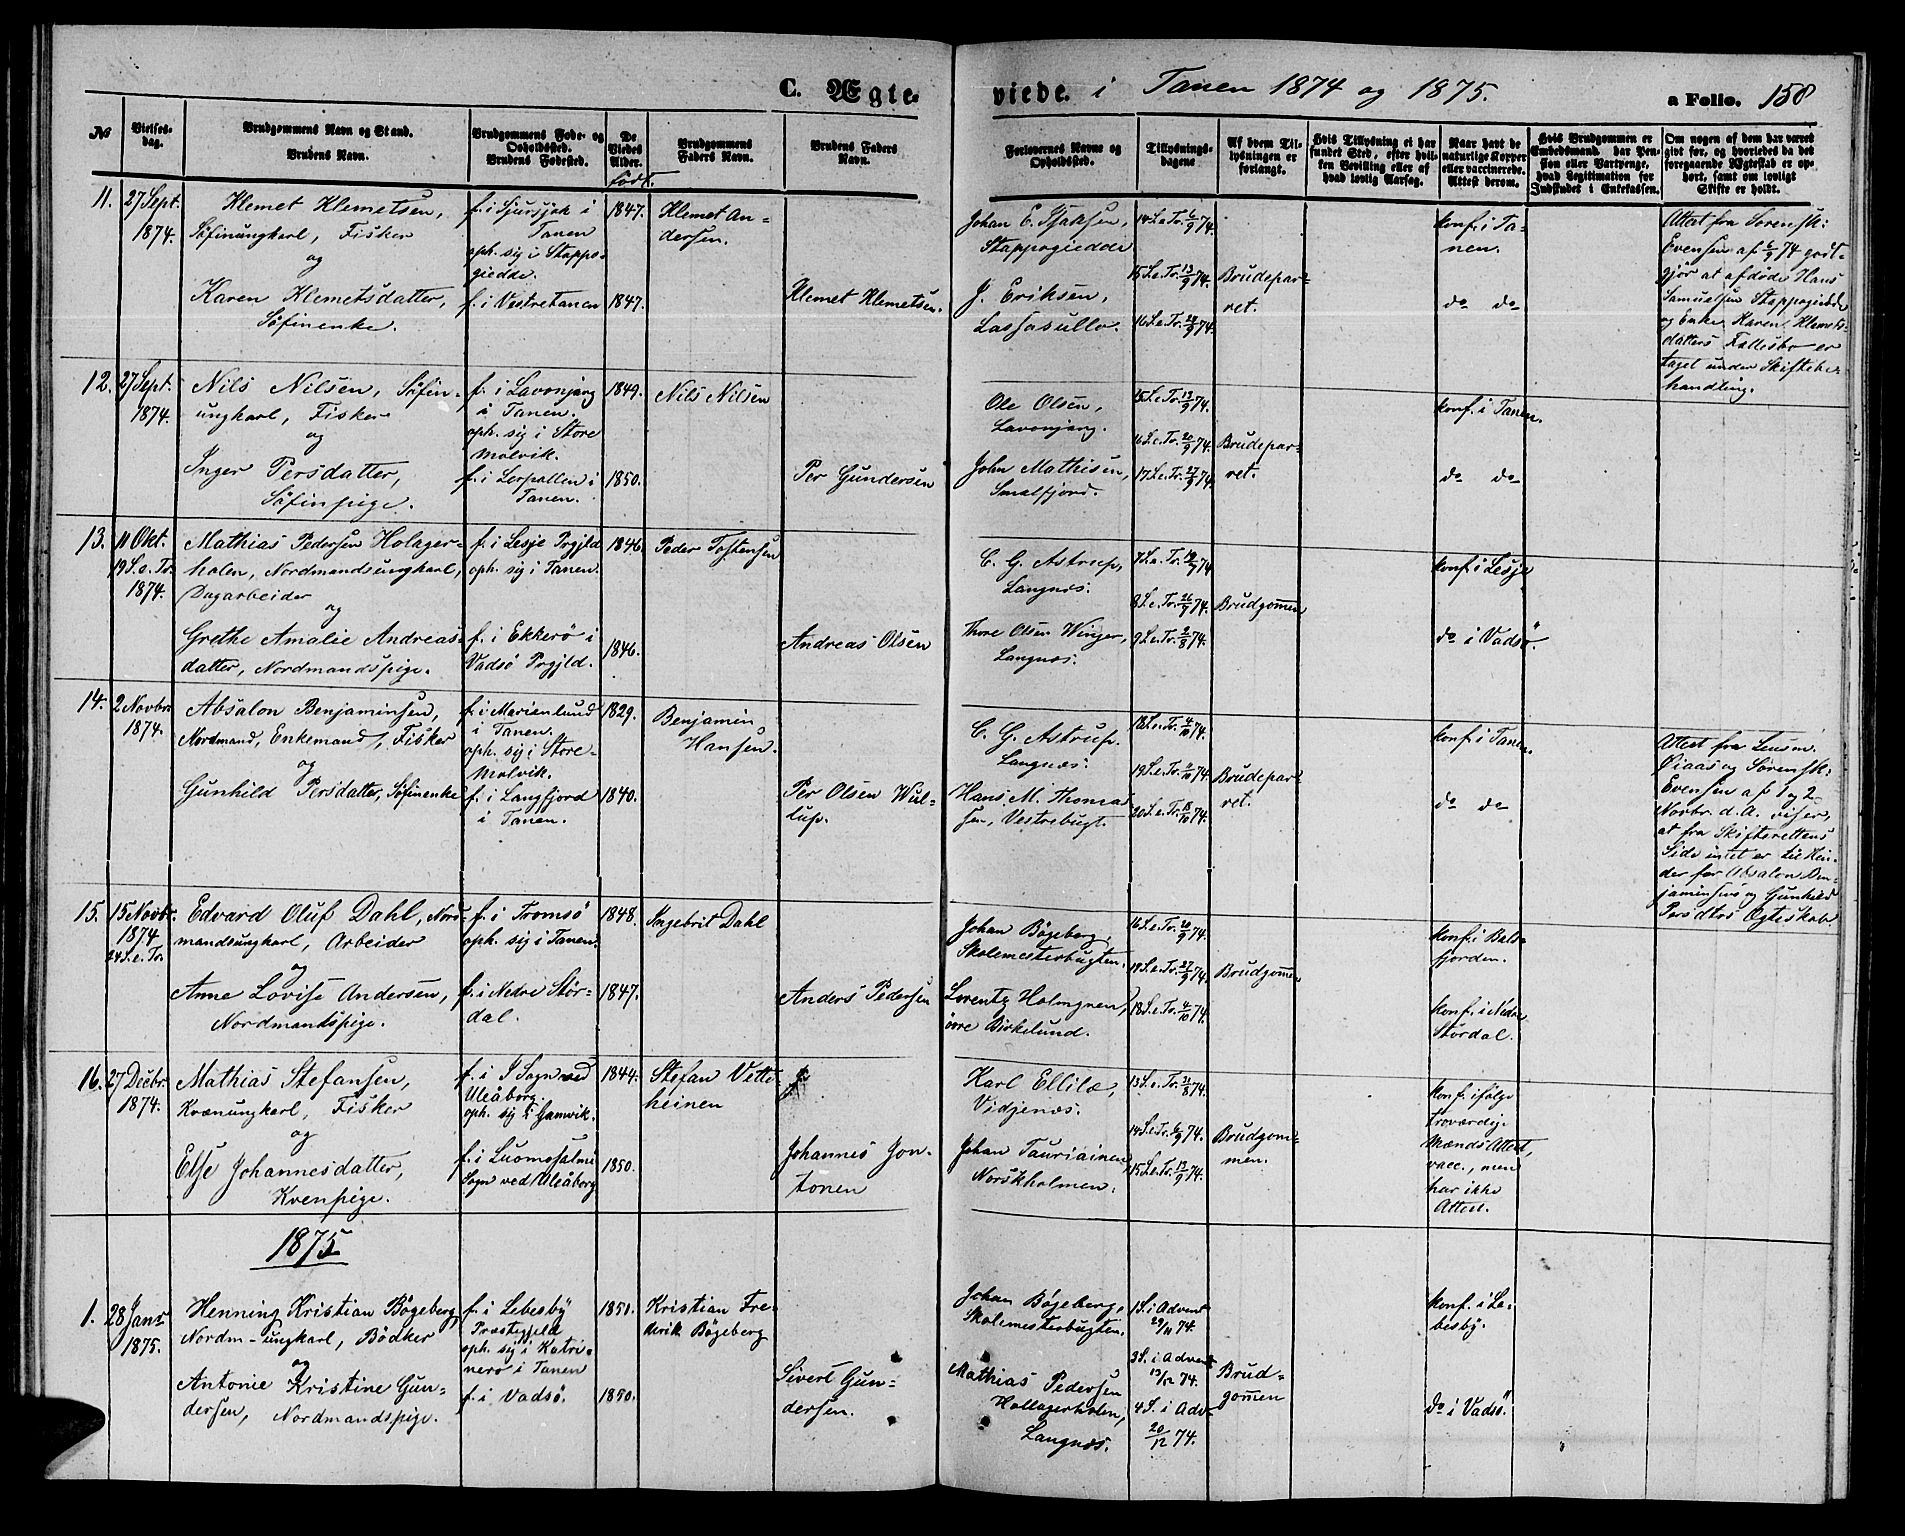 C. Ægte-viede. i Tanen 1874 og 1875.
a Folio. 158
№
Vielses-
dag.
Brudgommens Navn og Stand.
Brudens Navn.
Brudgommens Føde- og
Opholdssted.
Brudens Fødested.
De
Viedes
Alder.
født.
Brudgommens
Faders Navn.
Brudens Faders
Navn.
Forlovernes Navne og
Opholdssted.
Tillysnings-
dagene
Af hvem Til-
lysningen er
forlangt.
Hvis Tillysning ei har
fundet Sted, efter hvil-
ken Bevilling eller af
hvad lovlig Aarsag.
Naar havt de
naturlige Kopper
eller vaccinerede.
Attest derom.
Hvis Brudgommen er
Embedsmand, har Pen-
sion eller Vartpenge,
hvad Legitimation for
Indskudet i Enkekassen.
Om nogen af dem har været
gift før, og hvorledes da det
foregaaende Ægteskab er op-
hørt, samt om lovligt
Skifte er holdt.
11.
27 Sept.
1874.
Klemet Klemetsen,
Söfinungkarl, Fisker
og
Karen Klemetsdatter,
Söfinenke.
f. i Sjursjok i
Tanen
oph. sig i Stappo-
giedde.
f. i Vestretanen
1847.
1847.
Klemet An-
dersen.
Klemet Klemetsen.
Johan E. Isaksen,
Stappogiedde
J. Eriksen,
Lassasullo.
14 S. e. Tr. 6/9 74.
15 S. e. Tr. 13/9 74.
16 S. e. Tr. 20/9 74.
Brudepar-
ret.
konf. i Ta-
nen.
do do
Attest fra Sorensk:
Evensen af 6/9 74 godt-
gjør at afdøde Hans
Samuelsen Stappogiedde
og Enke Karen Klemets-
datters Fællesbo er
taget under Skiftebe-
handling.
12.
27 Sept.
1874.
Nils Nilsen, Söfin-
ungkarl, Fisker
og
Inger Persdatter,
Söfinpige.
f. i Lavonjarg
i Tanen.
oph. sig i Store
Molvik.
f. i Lerpollen i
Tanen.
1849.
1850.
Nils Nilsen
Per Gundersen
Ole Olsen,
Lavonjarg.
John Mathisen,
Smalfjord.
15 S. e. Tr. 13/9 74.
16 S. e. Tr. 20/9 74.
17 S. e. Tr. 27/9 74.
Brudepar-
ret.
konf. i Tanen.
do do
13.
11 Okt.
19 S. e. Tr.
1874.
Mathias Pedersen Holager-
holen, Nordmandsungkarl,
Dagarbeider
og
Grethe Amalie Andreas-
datter, Nordmandspige.
f. i Lesje Prgjld
oph. sig i Tanen.
f. i Ekkerö i
Vadsö Prgjld.
1846
1846.
Peder Tostensen
Andreas Olsen
C. G. Astrup,
Langnæs.
Thore Olsen Winger,
Langnæs.
7 S. e. Tr.
8 S. e. Tr.
9 S. e. Tr.
Brudgom̅en
konf. i Lesje
do i Vadsö.
14.
2 Novbr.
1874.
Absalon Benjaminsen,
Nordmand, Enkemand, Fisker
og
Gunhild Persdatter, Söfinenke
f. i Marienlund
i Tanen.
oph. sig i Store-
Molvik.
f. i Langfjord
i Tanen.
1829.
1840.
Benjamin
Hansen.
Per Olsen Wul-
lup.
C. G. Astrup.
Langnæs.
Hans M. Thomas-
sen, Vestrebugt.
18 S. e. Tr. 4/10 74.
19 S. e. Tr. 11/10 74.
20 S. e. Tr. 18/10 74.
Brudepar-
ret.
konf. i Tanen.
do do
Attest fra Lensm.
Öiaas og Sørensk:
Evensen af 1 og 2
Novbr. d. A. viser,
at fra Skifterettens
Side intet er til Hin-
der for Absalon Ben-
jaminsens og Gunhild
Persdtrs Ægteskab.
15.
15 Novbr.
1874
24 S. e. Tr.
Edvard Oluf Dahl, Nord-
mandsungkarl, Arbeider
og
Anne Lovise Andersen,
Nordmandspige.
f. i Tromsö
oph. sig i Tanen.
f. i Nedre Stör-
dal.
1848.
1847.
Ingebrit Dahl
Anders Pedersen
Johan Bøgeberg,
Skolemesterbugten.
Lorentz Holmgren,
övre Birkelund.
16 S. e. Tr. 20/9 74.
S. e. Tr. 27/9 74.
18 S. e. Tr. 4/10 74.
Brudgom̅en
konf. i Bals-
fjorden.
konf. i Nedre
Stördal.
16.
27 Decbr.
1874.
Mathias Stefansen,
Kvænungkarl, Fisker
og
Else Johannesdatter,
Kvenpige.
f. i I Sogn ved
Uleåborg.
oph. sig i Gamvik.
f. i Suomosalmi
Sogn ved Uleåborg
1844.
1850.
Stefan Vette-
heinen
Johannes Jon-
tonen
Karl Ellilä,
Vidjenæs.
Johan Tauriainen,
Norskholmen.
13 S. e. Tr. 31/8 74.
14 S. e. Tr. 6/9 74.
15 S. e. Tr. 13/9 74.
Brudgom-
men.
konf. ifølge
troværdig.
Mænds Attest,
vacc., men
har ikke
Attest.
1875
1.
28 Janr
1875.
Henning Kristian Bögeberg,
Nordm-ungkarl, Bödker
og
Antonie Kristine Gun-
dersen, Nordmandspige.
f. i Lebesby
Præstegjeld
oph. sig i Katri-
nerö i Tanen
f. i Vadsö.
1851.
1850.
Kristian Fre-
derik Bögeberg
Sivert Gun-
dersen.
Johan Bögeberg,
Skolemesterbugten.
Mathias Pedersen
Hollagerholen,
Langnæs.
1 S. i Advent
29/11 74.
3 S. i Advent
13/12 74.
4 S. i Adv-
20/12 74.
Brud-
gom̅en
konf. i Le-
besby.
do i Vadsö.